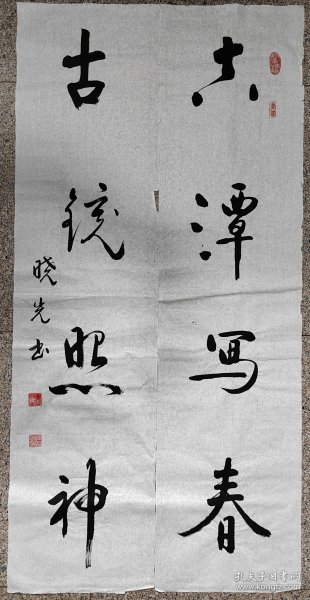 空潭写春
古镜照神
晓先书
孔夫子旧书网
www.kongfz.com